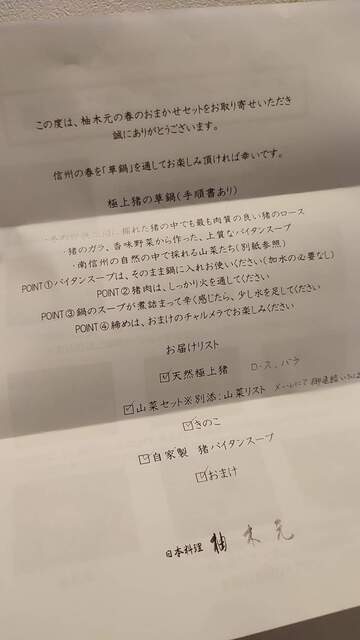 この度は、柚木元の春のおまかせセットをお取り寄せいただき
誠にありがとうございます。
信州の春を「草鍋」を通してお楽しみ頂ければ幸いです。
極上猪の草鍋(手順書あり)
に採れた猪の中でも最も肉質の良い猪のロース
・猪のガラ、香味野菜から作った、上質なパイタンスープ
・南信州の自然の中で採れる山菜たち(別紙参照)
POINT①パイタンスープは、そのまま鍋に入れお使いください(加水の必要なし)
POINT②猪肉は、しっかり火を通してください
POINT③鍋のスープが煮詰まって辛く感じたら、少し水を足してください
POINT④締めは、おまけのチャルメラでお楽しみください
お届けリスト
☑天然極上猪 ロース、バラ
☑山菜セット※別添:山菜リスト
☑きのこ
☑自家製 猪パイタンスープ
☑おまけ
日本料理 柚木元